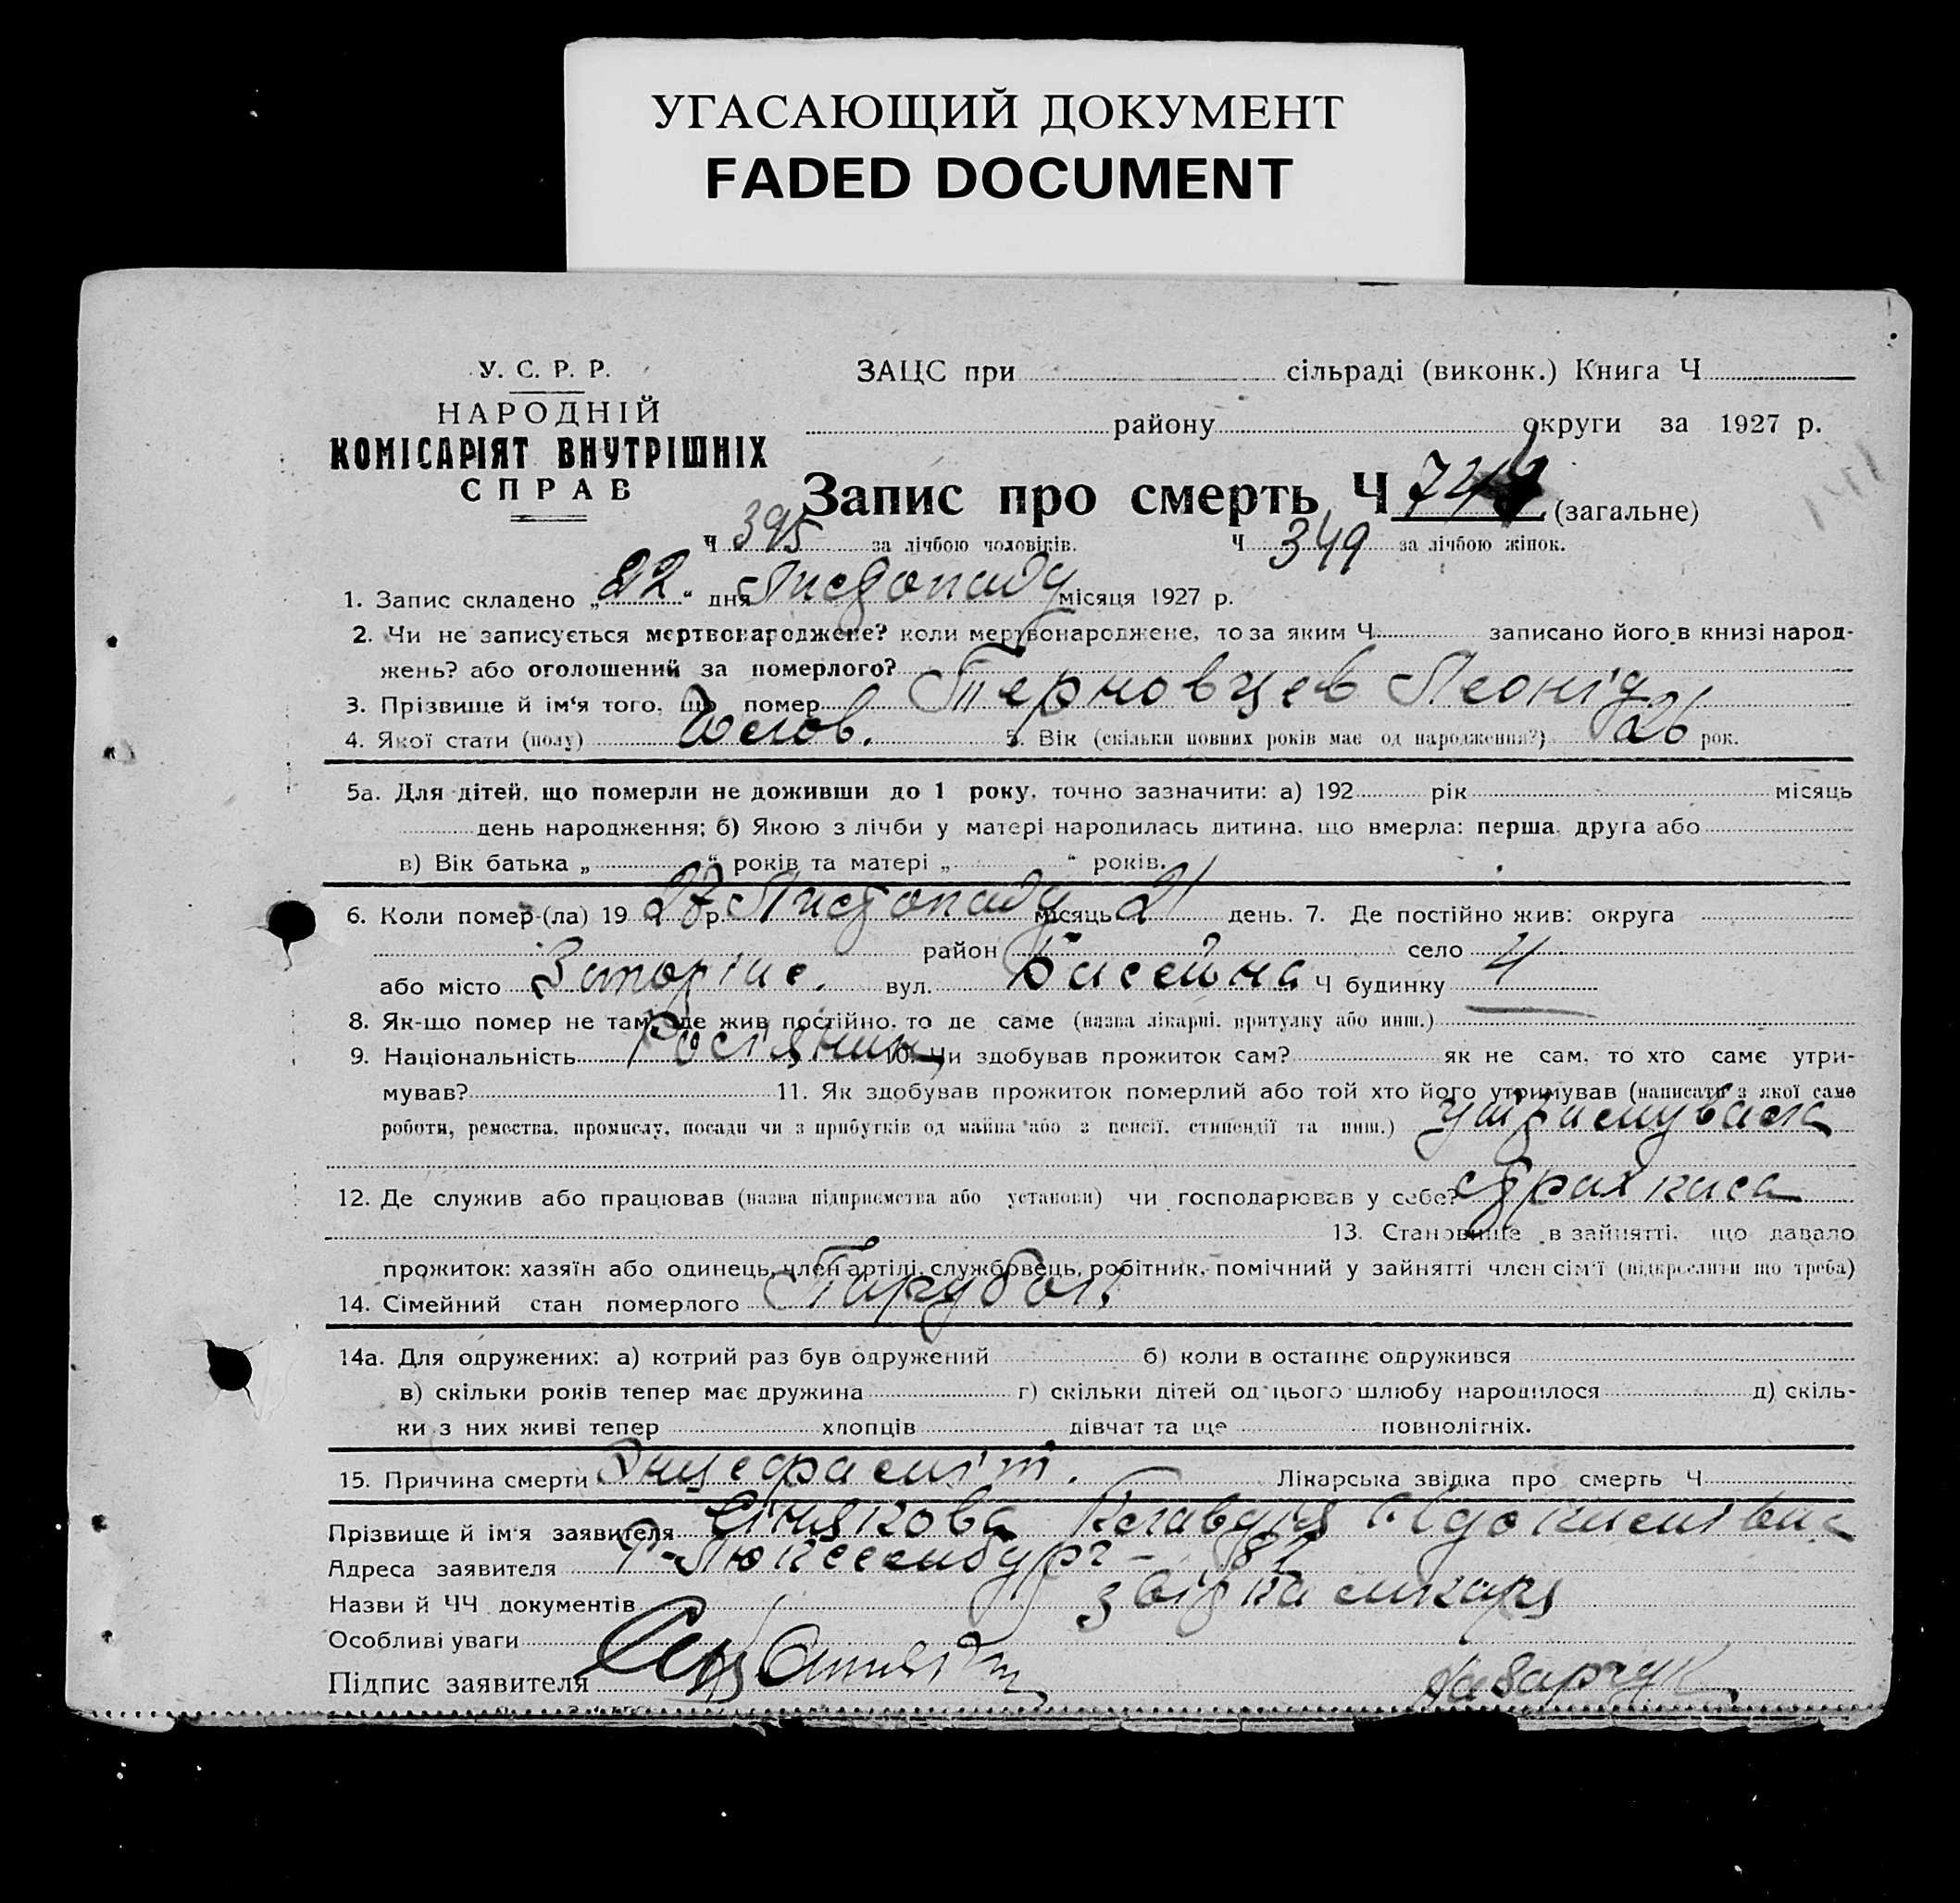 УГАСАЮЩИЙ ДОКУМЕНТ
FADED DOCUMENT
У. С. Р. Р.
НАРОДНІЙ
КОМІСАРІЯТ ВНУТРІШНІХ
СПРАВ
ЗАЦС при сільраді (виконк.) Книга Ч
району округи за 1927 р.
Запис про смерть Ч (загальне)
Ч 395 за лічбою чоловіків. Ч 349 за лічбою жінок.
1. Запис складено „22“ дня Листопаду місяця 1927 р.
2. Чи не записується мертвонароджене? коли мертвонароджене, то за яким Ч записано його в книзі народ-
жень? або оголошений за померлого?
3. Прізвище й ім'я того, що помер Терновцев Леонід
4. Якої стати (полу) Чолов. 5. Вік (скільки повних років має од народження?) 26 рок.
5а. Для дітей, що померли не доживши до 1 року, точно зазначити: а) 192 рік місяць
день народження; б) Якою з лічби у матері народилась дитина, що вмерла: перша, друга або
в) Вік батька „ “ років та матері „ “ років.
6. Коли помер-(ла) 19 27 р. Листопаду місяць 21 день. 7. Де постійно жив: округа
район село
або місто Запоріжже. вул. Басейна Ч будинку 4
8. Як-що помер не там, де жив постійно, то де саме (назва лікарні, притулку або инш.)
9. Національність Росіянин 10. Чи здобував прожиток сам? як не сам, то хто саме утри-
мував? 11. Як здобував прожиток померлий або той хто його утримував (написати з якої саме
роботи, ремества, промислу, посади чи з прибутків од майна або з пенсії, стипендії та инш.) утримувала
12. Де служив або працював (назва підприємства або установи) чи господарював у себе? страхкаса
13. Становище в зайнятті, що давало
прожиток: хазяїн або одинець, член артілі, службовець, робітник, помічний у зайнятті член сім'ї (підкреслити що треба)
14. Сімейний стан померлого Парубок.
14а. Для одружених: а) котрий раз був одружений б) коли в останнє одружився
в) скільки років тепер має дружина г) скільки дітей од цього шлюбу народилося д) скіль-
ки з них живі тепер хлопців дівчат та ще повнолітніх.
15. Причина смерти Енцефаліт. Лікарська звідка про смерть Ч
Прізвище й ім'я заявителя Сінякова Клавдія
Адреса заявителя Р-Люксембург - 82
Назви й ЧЧ документів звідка лікаря
Особливі уваги
Підпис заявителя Назарчук